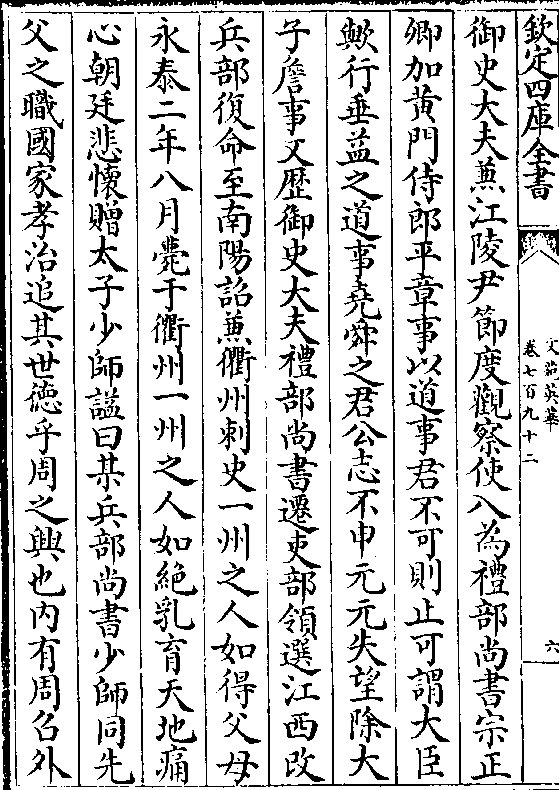 欽定四庫全書
文苑英華
卷七百九十二
六
御史大夫兼江陵尹節度觀察使入為禮部尚書宗正
卿加黄門侍郎平章事以道事君不可則止可謂大臣
歟行垂益之道事堯舜之君公志不申元元失望除大
子詹事又歴御史大夫禮部尚書遷吏部領選江西改
兵部復命至南陽詔兼衢州刺史一州之人如得父母
永泰二年八月薨于衢州一州之人如絶乳育天地痛
心朝廷悲懷贈太子少師諡曰某兵部尚書少師同先
父之職國家孝治追其世德乎周之興也内有周召外